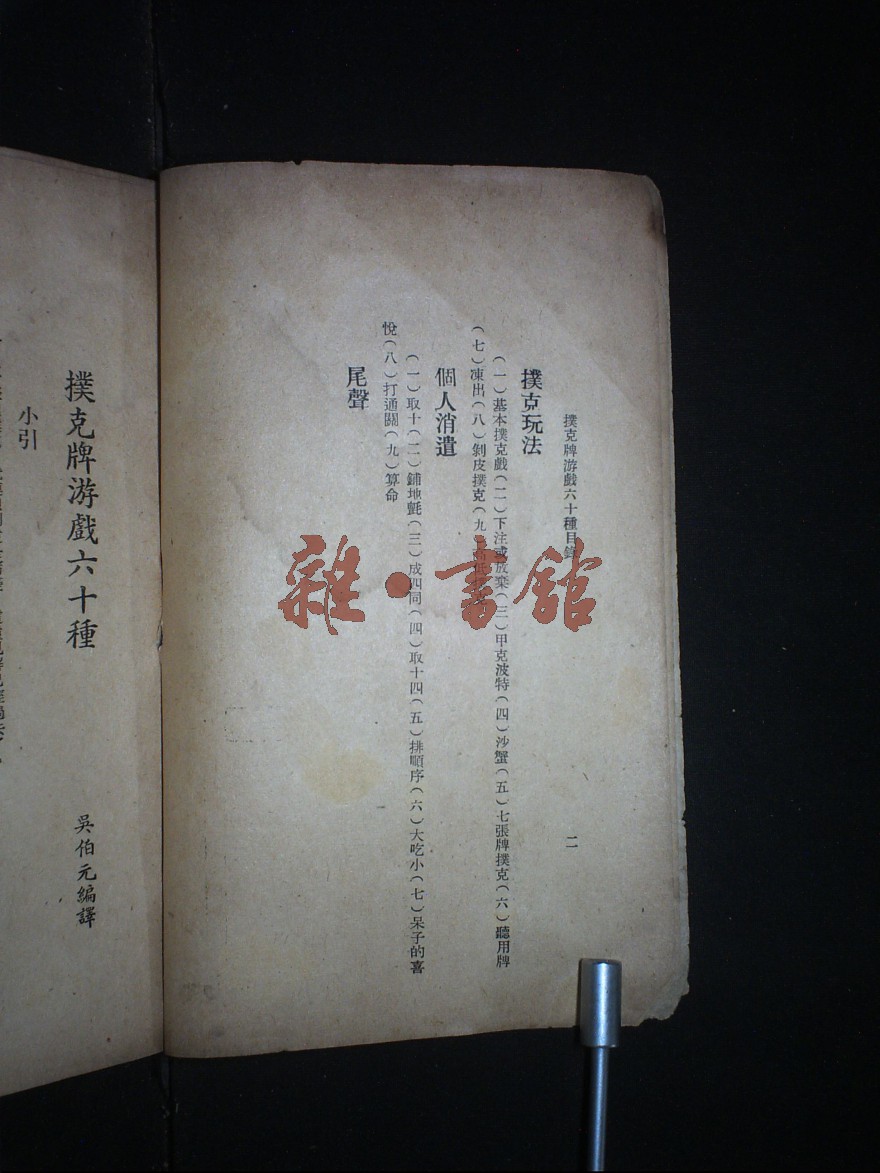 撲克牌游戲六十種目錄
二
撲克玩法
(一)基本撲克戲(二)下注或放棄(三)甲克波特(四)沙蟹(五)七張牌撲克(六)聽用牌
(七)凍出(八)剝皮撲克(九)高低撲克
個人消遣
(一)取十(二)鋪地氈(三)成四同(四)取十四(五)排順序(六)大吃小(七)呆子的喜
悅(八)打通關(九)算命
尾聲
撲克牌游戲六十種
吳伯元編譯
小引
雜·書館